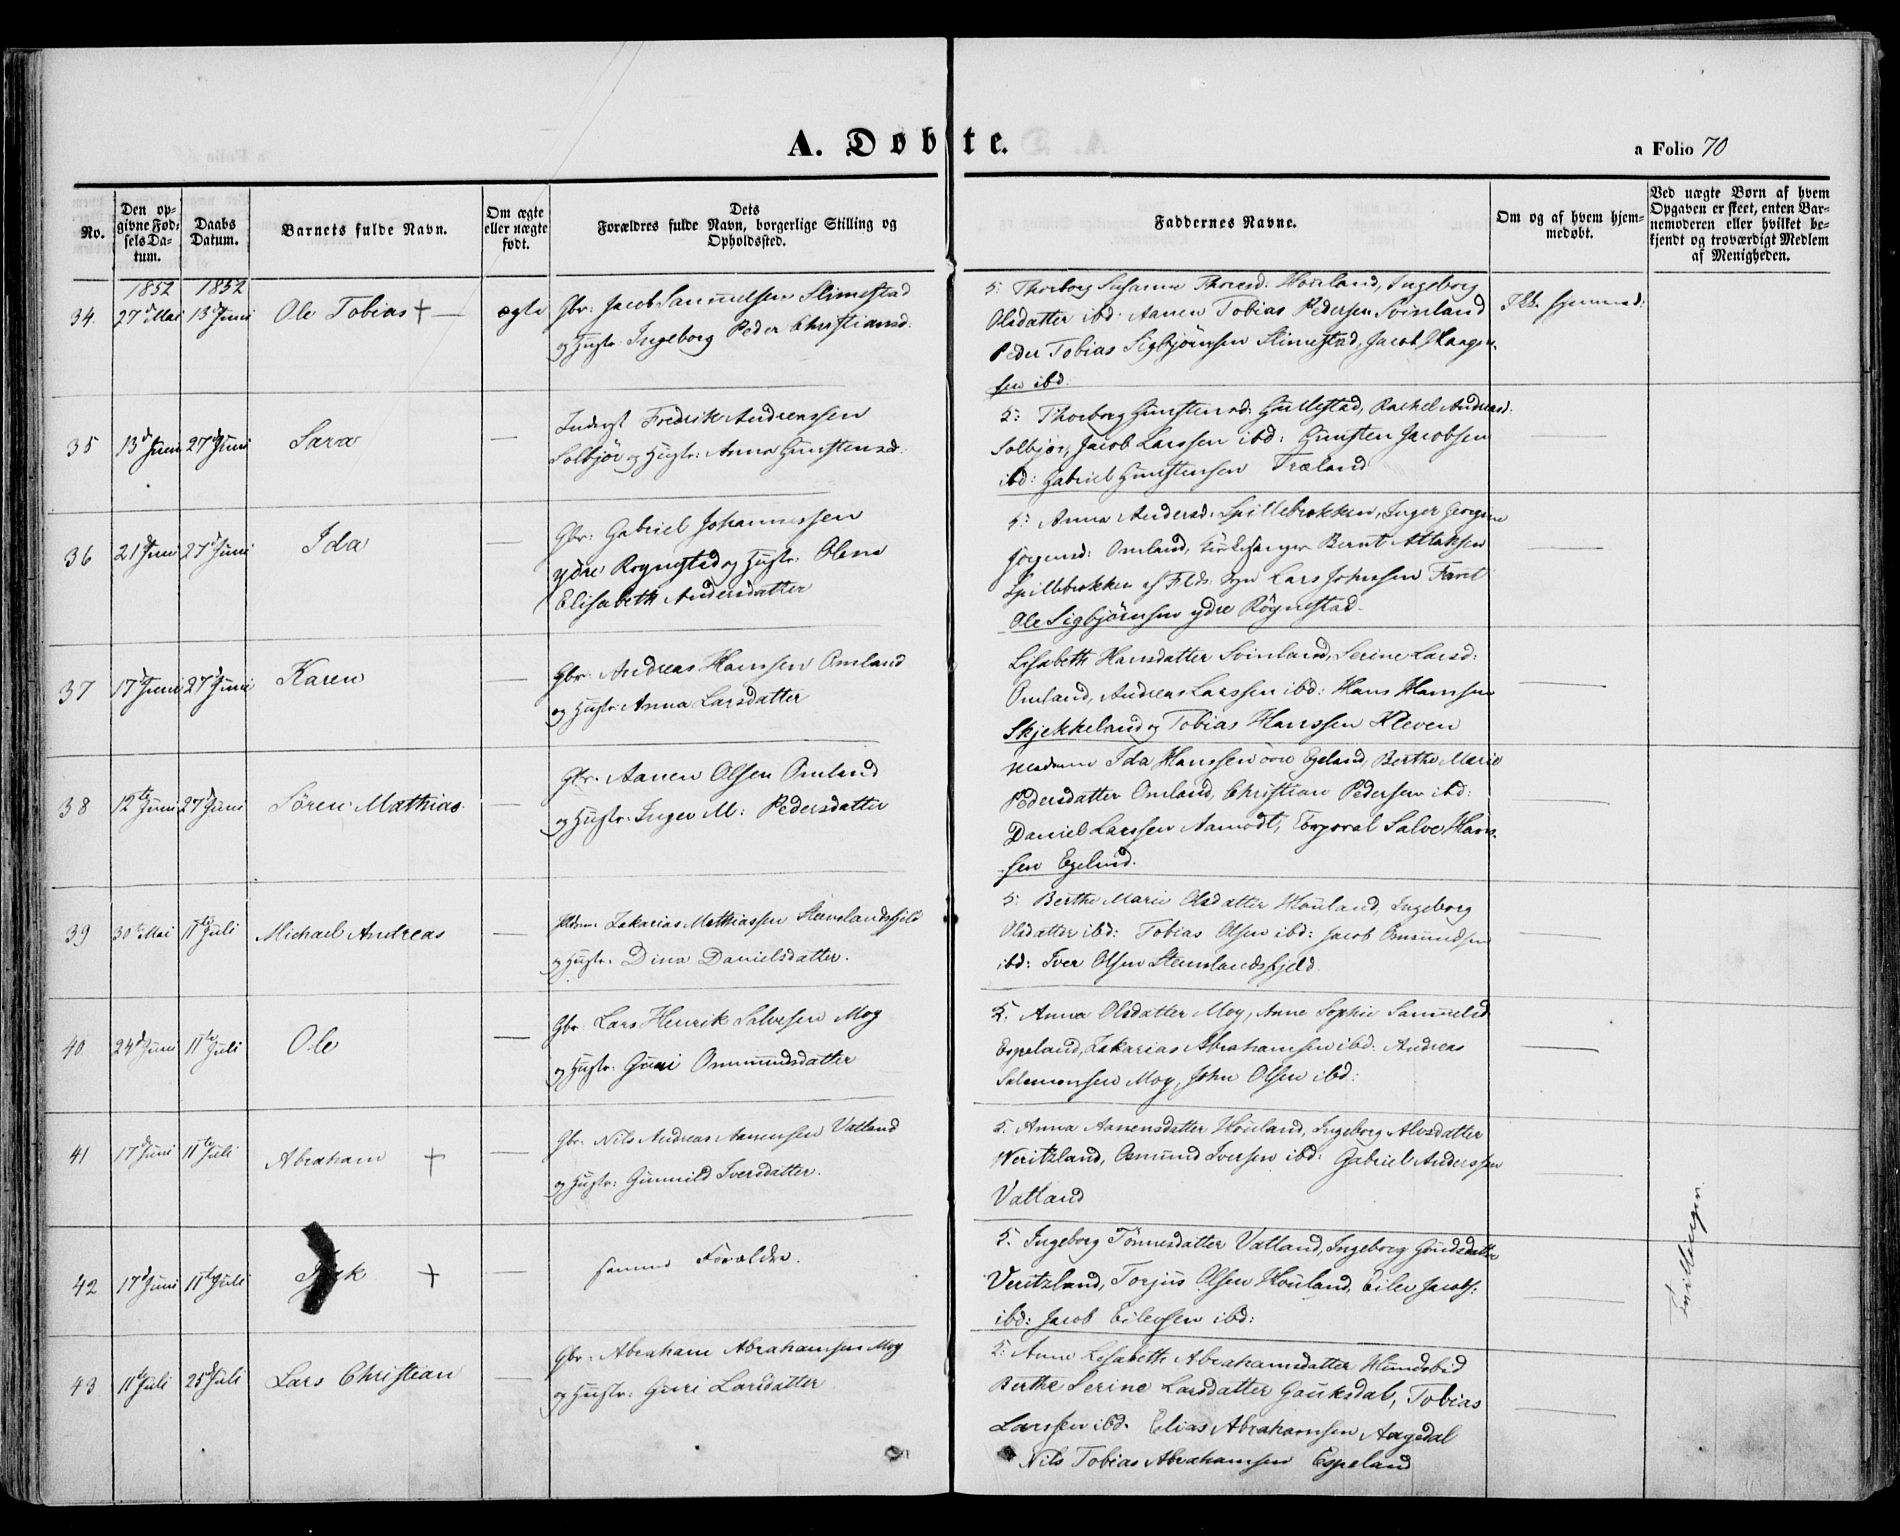 A. Døbte.
a Folio 70
No.
Den op-
givne Fød-
sels Da-
tum.
Daabs
Datum.
Barnets fulde Navn.
Om ægte
eller uægte
født.
Dets
Forældres fulde Navn, borgerlige Stilling og
Opholdssted.
Faddernes Navne.
Om og af hvem hjem-
medøbt.
Ved uægte Børn af hvem
Opgaven er skeet, enten Bar-
nemoderen eller hvilket be-
kjendt og troværdigt Medlem
af Menigheden.
1852 1852
34. 27d Mai 13d Juni Ole Tobias + — ægte
Gbr: Jacob Samuelsen Slimestad
og Hustr: Ingeborg Peder Christiansd:
5: Thorborg Susanne Thoresd: Houland, Ingeborg
Olsdatter ibd: Aanen Tobias Pedersen Svinland
Peder Tobias Sigbjörnsen Slimestad, Jacob Haagen-
sen ibd.
Ikke hjemmed:
35 13d Juni 27d Juni Sara —
Inderst Fredrik Andreassen
Solbjør og Hustr: Anna Gunstensd:
5: Thorborg Gunstensd: Gullestad, Rachel Andreasd:
Solbjør, Jacob Larssen ibd: Gunsten Jacobsen
ibd: Gabriel Gunstensen Træland
36 21d Juni 27d Juni Ida —
Gbr: Gabriel Johannessen
ydre Røgnestad og Hustr: Olene
Elisabeth Andersdatter
5: Anna Andersd: Spillebrokken, Inger
Jørgensd: Omland, Kirkesanger Bernt Attaksen
Spillebrokken af Lars Johnssen
Ole Sigbjörnsen ydre Rögnestad.
37 17d Juni 27d Juni Karen —
Gbr: Andreas Hanssen Omland
og Hustr: Anna Larsdatter
Lisabeth Hansdatter Svinland, Serine Larsd:
Omland, Andreas Larssen ibd: Hans Hansen
Skjekkeland og Tobias Hanssen Kleven
38 12te Juni 27d Juni Søren Mathias. —
Gbr: Aanen Olsen Omland
og Hustr: Inger M: Pedersdatter
Madame Ida Hanssen övre Egeland, Berthe Marie
Pedersdatter Omland, Christian Pedersen ibd:
Daniel Larssen Aamodt, Corporal Salve Hans-
sen Egeland.
39 30te Mai 11te Juli Michael Andreas —
Zakarias Mathiassen Stenslandsfjeld
og Hustr: Dina Danielsdatter.
5: Berthe Marie Olsdatter Houland, Ingeborg
Olsdatter ibd: Tobias Olsen ibd: Jacob Omundsen
ibd: Iver Olsen Stenslandsfjeld.
40 24d Juni 11te Juli Ole —
Gbr: Lars Henrik Salvesen Moy
og Hustr: Guri Ommundsdatter
5. Anna Olsdatter Moy, Anne Sophie Samuelsd
Espeland, Zakarias Abrahamsen ibd: Andreas
Salomonsen Moy, John Olsen ibd:
41 17d Juni 11te Juli Abraham + —
Gbr: Nils Andreas Aanensen Vatland
og Hustr: Gunnild Iversdatter.
5. Anna Aanensdatter Houland, Ingeborg Alvsdatter
Weritzland, Osmund Iversen ibd: Gabriel Anderssen
Vatland
42 17d Juni 11te Juli + —
samme Forældre.
5. Ingeborg Tönnesdatter Vatland, Ingeborg
Veritzland, Torjus Olsen Houland, Eiler Jacobs:
ibd: Jacob Eilersen ibd:
Tvillinger.
43 11te Juli 25d Juli Lars Christian —
Gbr: Abraham Abrahamsen Moy
og Hustr: Guri Larsdatter
5: Anne Lisabeth Abrahamsdatter
Berthe Serine Larsdatter Gauksdal, Tobias
Larssen ibd. Elias Abrahamsen Aagedal
Nils Tobias Abrahamsen Espeland